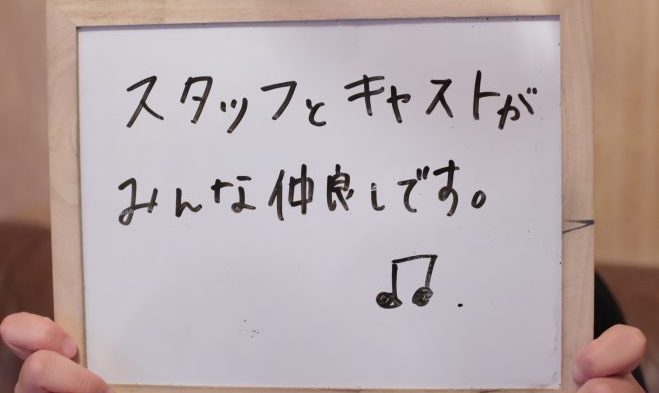 スタッフとキャストが
みんな仲良しです。
♫.